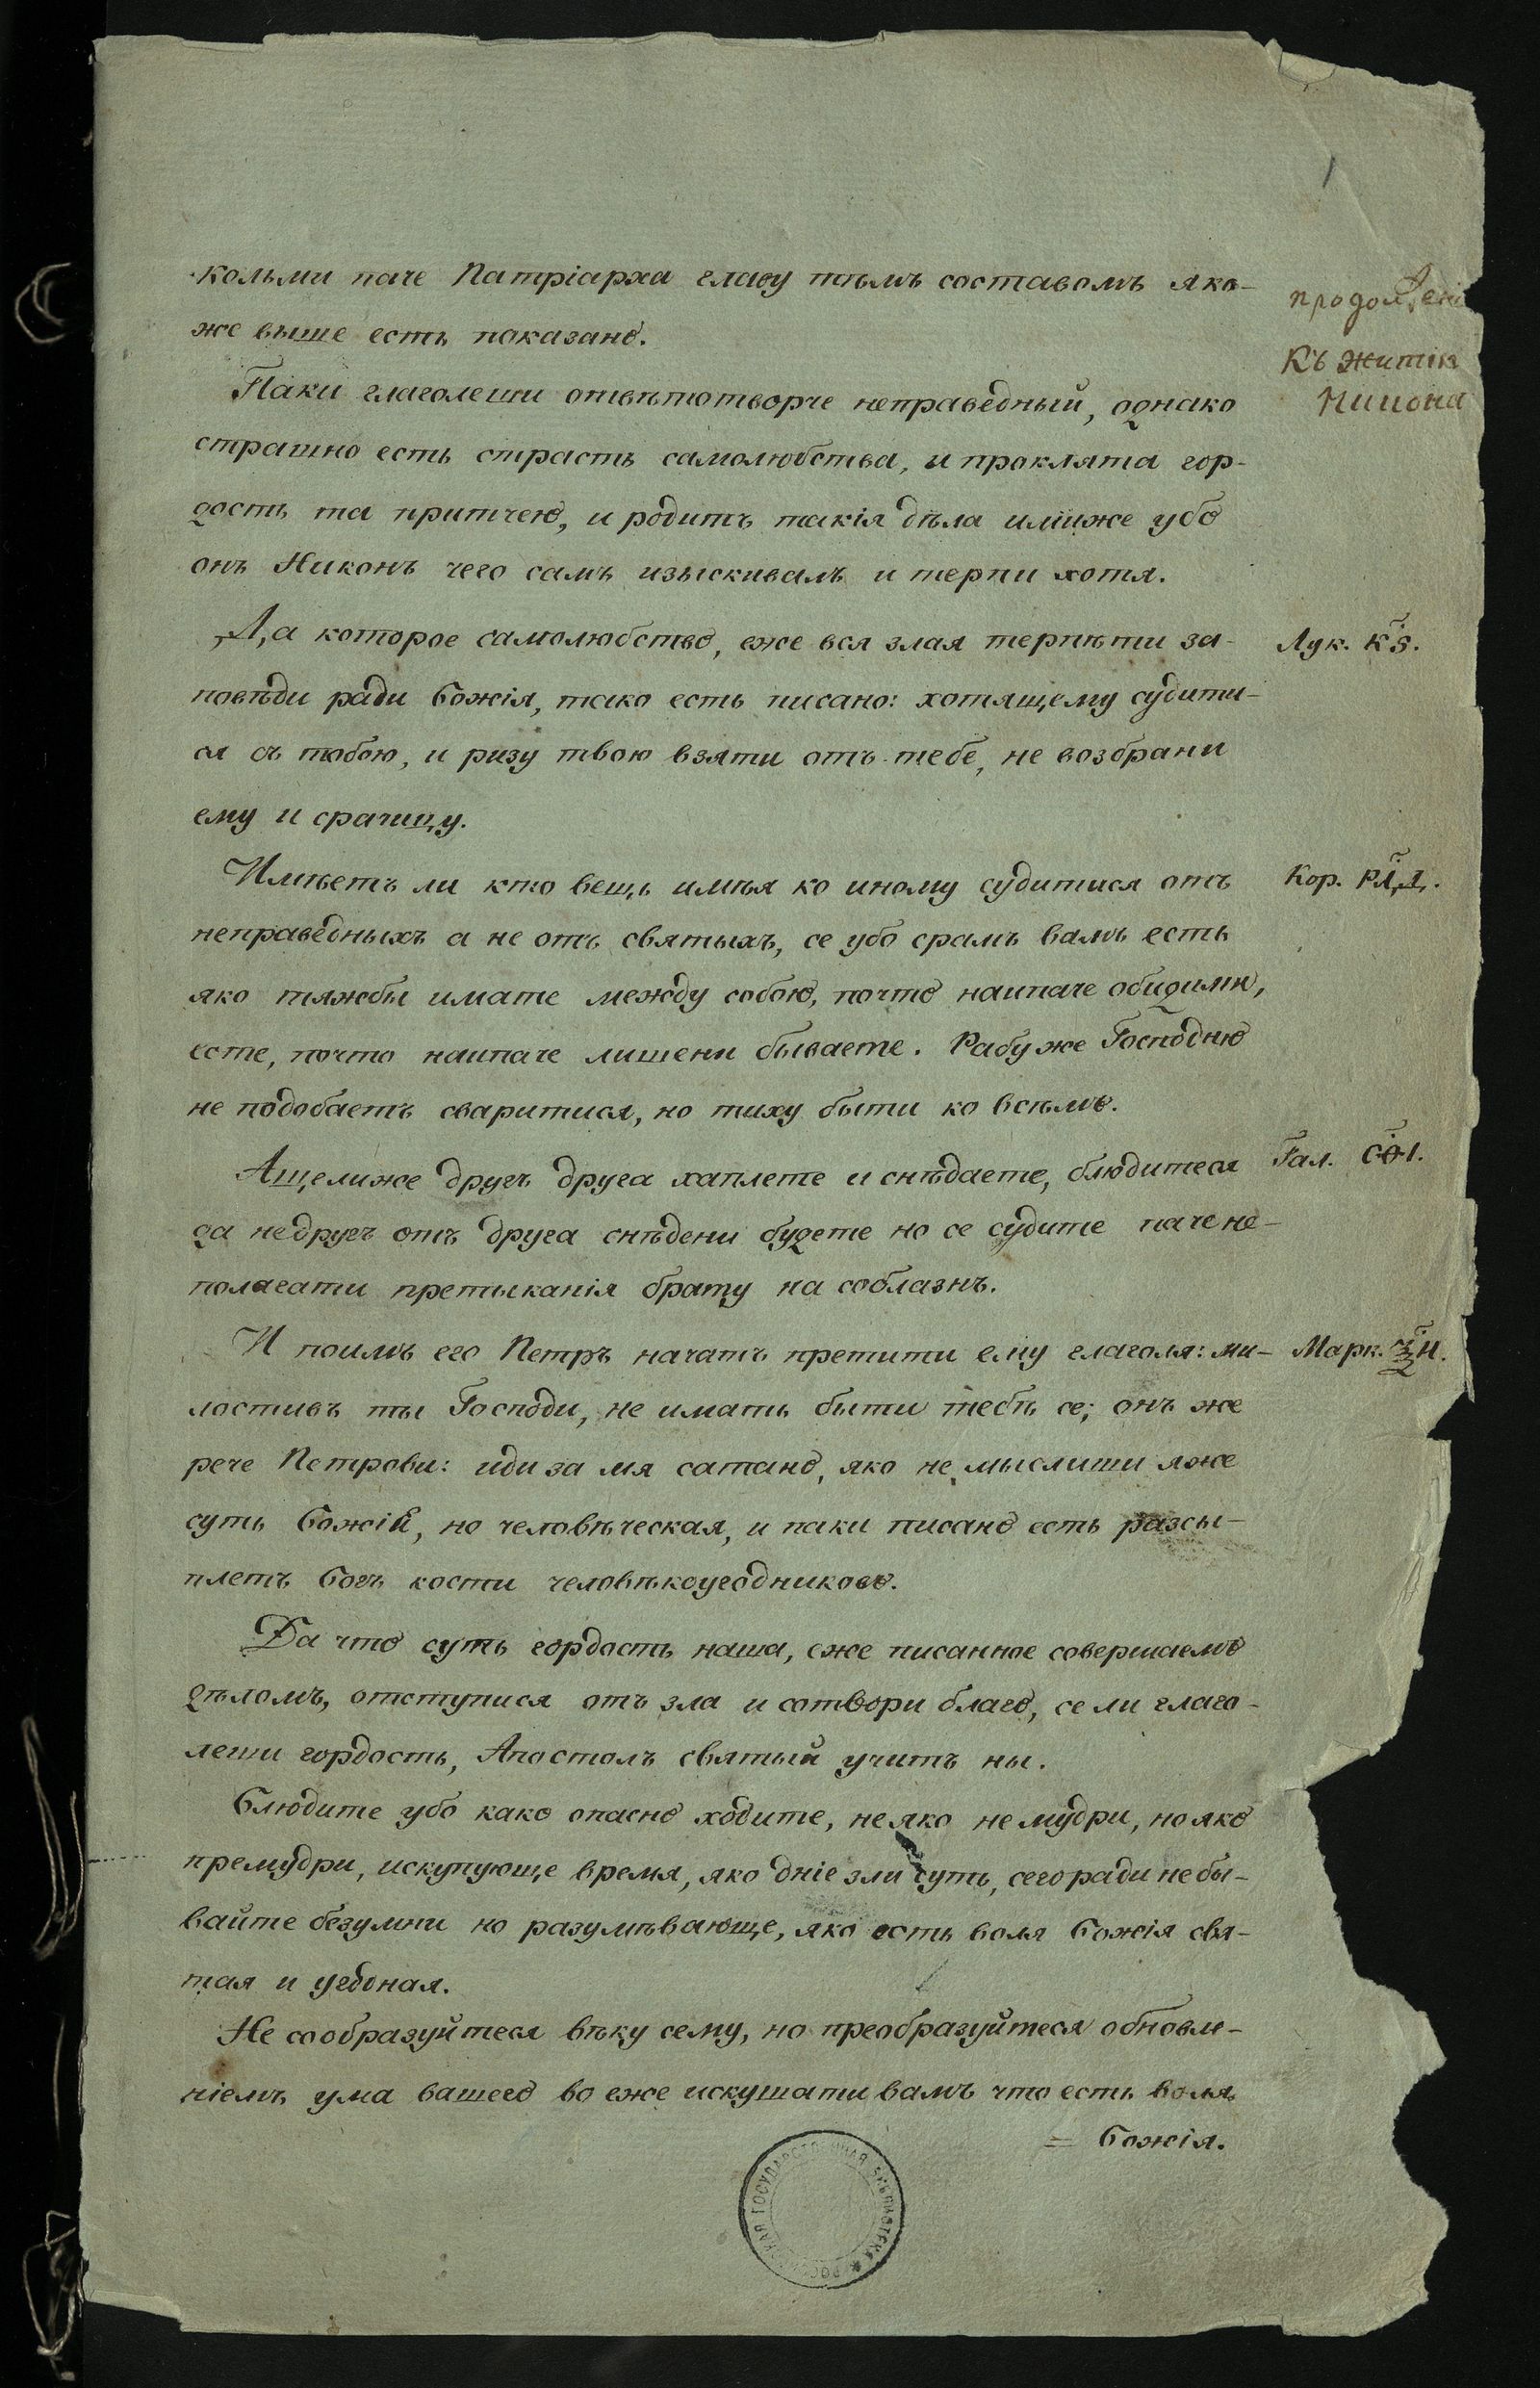 1
кольми паче Патріарха главу тѣмъ составомъ яко-
же выше есть показано.
продолжені
Къ житію
Никона
Паки глаголеши отвѣтотворче неправедный, однако
страшно есть страсть самолюбства, и проклята гор-
дость та притчею, и родитъ такія дѣла имиже убо
онъ Никонъ чего самъ изыскивалъ и терпи хотя.
Да которое самолюбство, еже вся злая терпѣти за-
Лук. к҃ѕ.
повѣди ради Божія, тако есть писано: хотящему судити-
ся съ тобою, и ризу твою взяти отъ тебе, не возбрани
ему и срачицу.
Имѣетъ ли кто вещь имѣя ко иному судитися отъ
Кор. рл҃д.
неправедныхъ а не отъ святыхъ, се убо срамъ вамъ есть
яко тяжбы имате между собою, почто наипаче обидими,
есте, почто наипаче лишени бываете. Рабу же Господню
не подобаетъ сваритися, но тиху быти ко всѣмъ.
Ащелиже другъ друга хаплете и снѣдаете, блюдитеся
Гал. с҃ѳ1.
да не другъ отъ друга снѣдени будете но се судите паче не-
полагати претыканія брату на соблазнъ.
И поимъ его Петръ начатъ претити ему глаголя: ми-
Марк.
лостивъ ты Господи, не имать быти тебѣ се; онъ же
рече Петрови: иди за мя сатано, яко не мыслиши яже
суть Божія, но человѣческая, и паки писано есть разсы-
плетъ Богъ кости человѣкоугодниковъ.
Да что суть гордость наша, еже писанное совершаемъ
дѣломъ, отступися отъ зла и сотвори благо, се ли глаго-
леши гордость, Апостолъ святый учитъ ны.
Блюдите убо како опасно ходите, не яко не мудри, но яко
премудри, искупующе время, яко дніе зли суть, сего ради не бы-
вайте безумни но разумѣвающе, яко есть воля Божія свя-
тая и угодная.
Не сообразуйтеся вѣку сему, но преобразуйтеся обновле-
ніемъ ума вашего во еже искушати вамъ что есть воля
= Божія.
РОССИЙСКАЯ ГОСУДАРСТВЕННАЯ БИБЛИОТЕКА